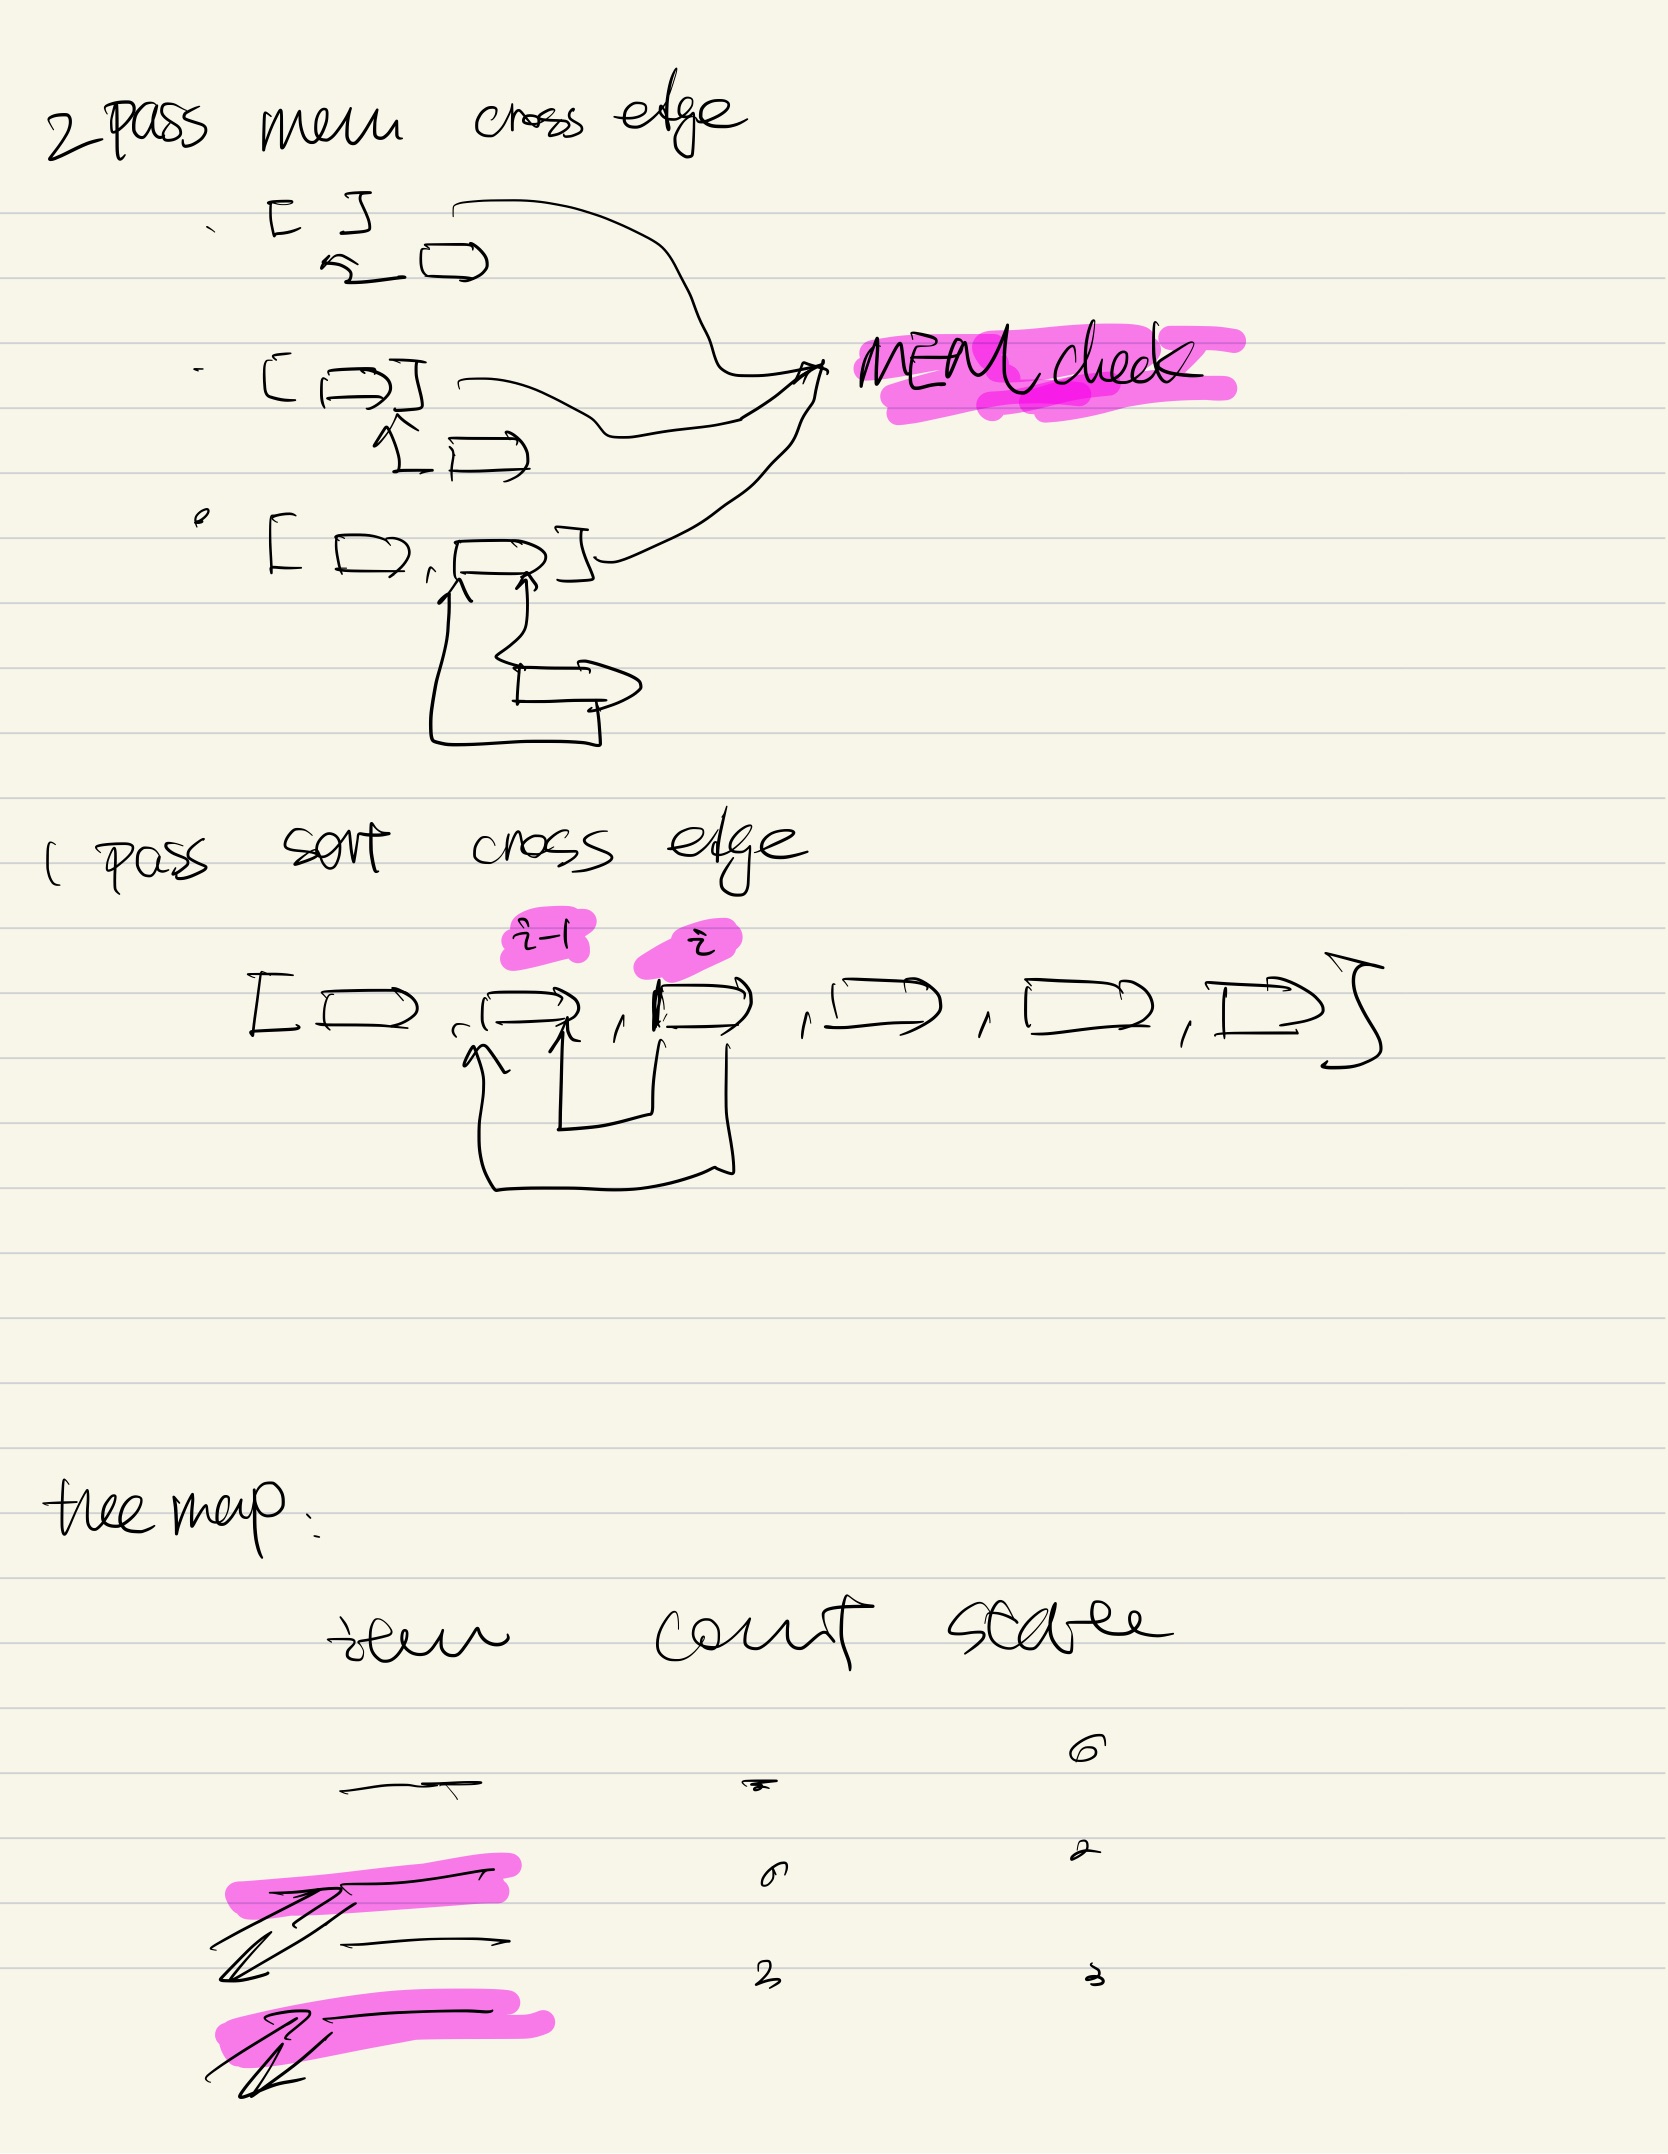 2 pass mem cross edge
[ ]
MEM check
[ ]
[ , ]
1 pass sort cross edge
i-1 i
[ , , , , , ]
tree map:
item count score
6
2
0
2 3